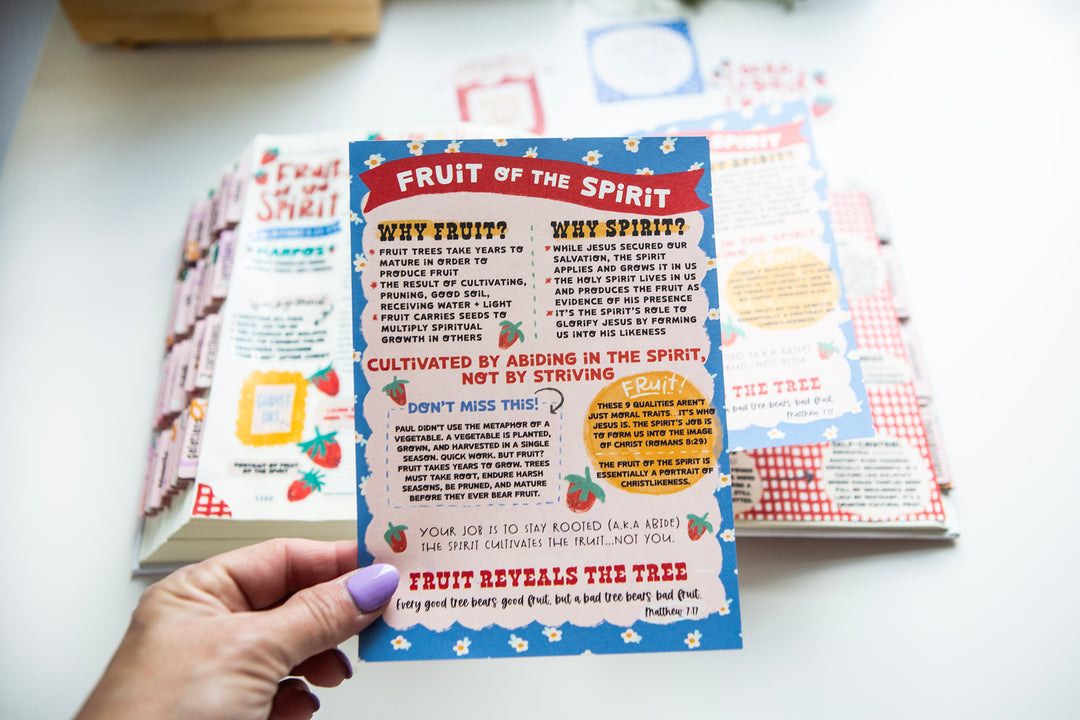 FRUIT OF THE SPIRIT
WHY FRUIT?
FRUIT TREES TAKE YEARS TO
MATURE IN ORDER TO
PRODUCE FRUIT
THE RESULT OF CULTIVATING,
PRUNING, GOOD SOIL,
RECEIVING WATER + LIGHT
FRUIT CARRIES SEEDS TO
MULTIPLY SPIRITUAL
GROWTH IN OTHERS
WHY SPIRIT?
WHILE JESUS SECURED OUR
SALVATION, THE SPIRIT
APPLIES AND GROWS IT IN US
THE HOLY SPIRIT LIVES IN US
AND PRODUCES THE FRUIT AS
EVIDENCE OF HIS PRESENCE
IT'S THE SPIRIT'S ROLE TO
GLORIFY JESUS BY FORMING
US INTO HIS LIKENESS
CULTIVATED BY ABIDING IN THE SPIRIT,
NOT BY STRIVING
DON'T MISS THIS!
PAUL DIDN'T USE THE METAPHOR OF A
VEGETABLE. A VEGETABLE IS PLANTED,
GROWN, AND HARVESTED IN A SINGLE
SEASON. QUICK WORK. BUT FRUIT?
FRUIT TAKES YEARS TO GROW. TREES
MUST TAKE ROOT, ENDURE HARSH
SEASONS, BE PRUNED, AND MATURE
BEFORE THEY EVER BEAR FRUIT.
FRUIT!
THESE 9 QUALITIES AREN'T
JUST MORAL TRAITS...IT'S WHO
JESUS IS. THE SPIRIT'S JOB IS
TO FORM US INTO THE IMAGE
OF CHRIST (ROMANS 8:29)
THE FRUIT OF THE SPIRIT IS
ESSENTIALLY A PORTRAIT OF
CHRISTLIKENESS.
YOUR JOB IS TO STAY ROOTED (A.K.A ABIDE)
THE SPIRIT CULTIVATES THE FRUIT...NOT YOU.
FRUIT REVEALS THE TREE
Every good tree bears good fruit, but a bad tree bears bad fruit.
Matthew 7:17
FRUIT
OF THE
SPIRIT
PORTRAIT OF FRUIT
OF THE SPIRIT
SPIRIT
SPIRIT?
THE SPIRIT
(A.K.A ABIDE)
FRUIT...NOT YOU.
THE TREE
a bad tree bears bad fruit.
Matthew 7:17
SELF-CONTROL